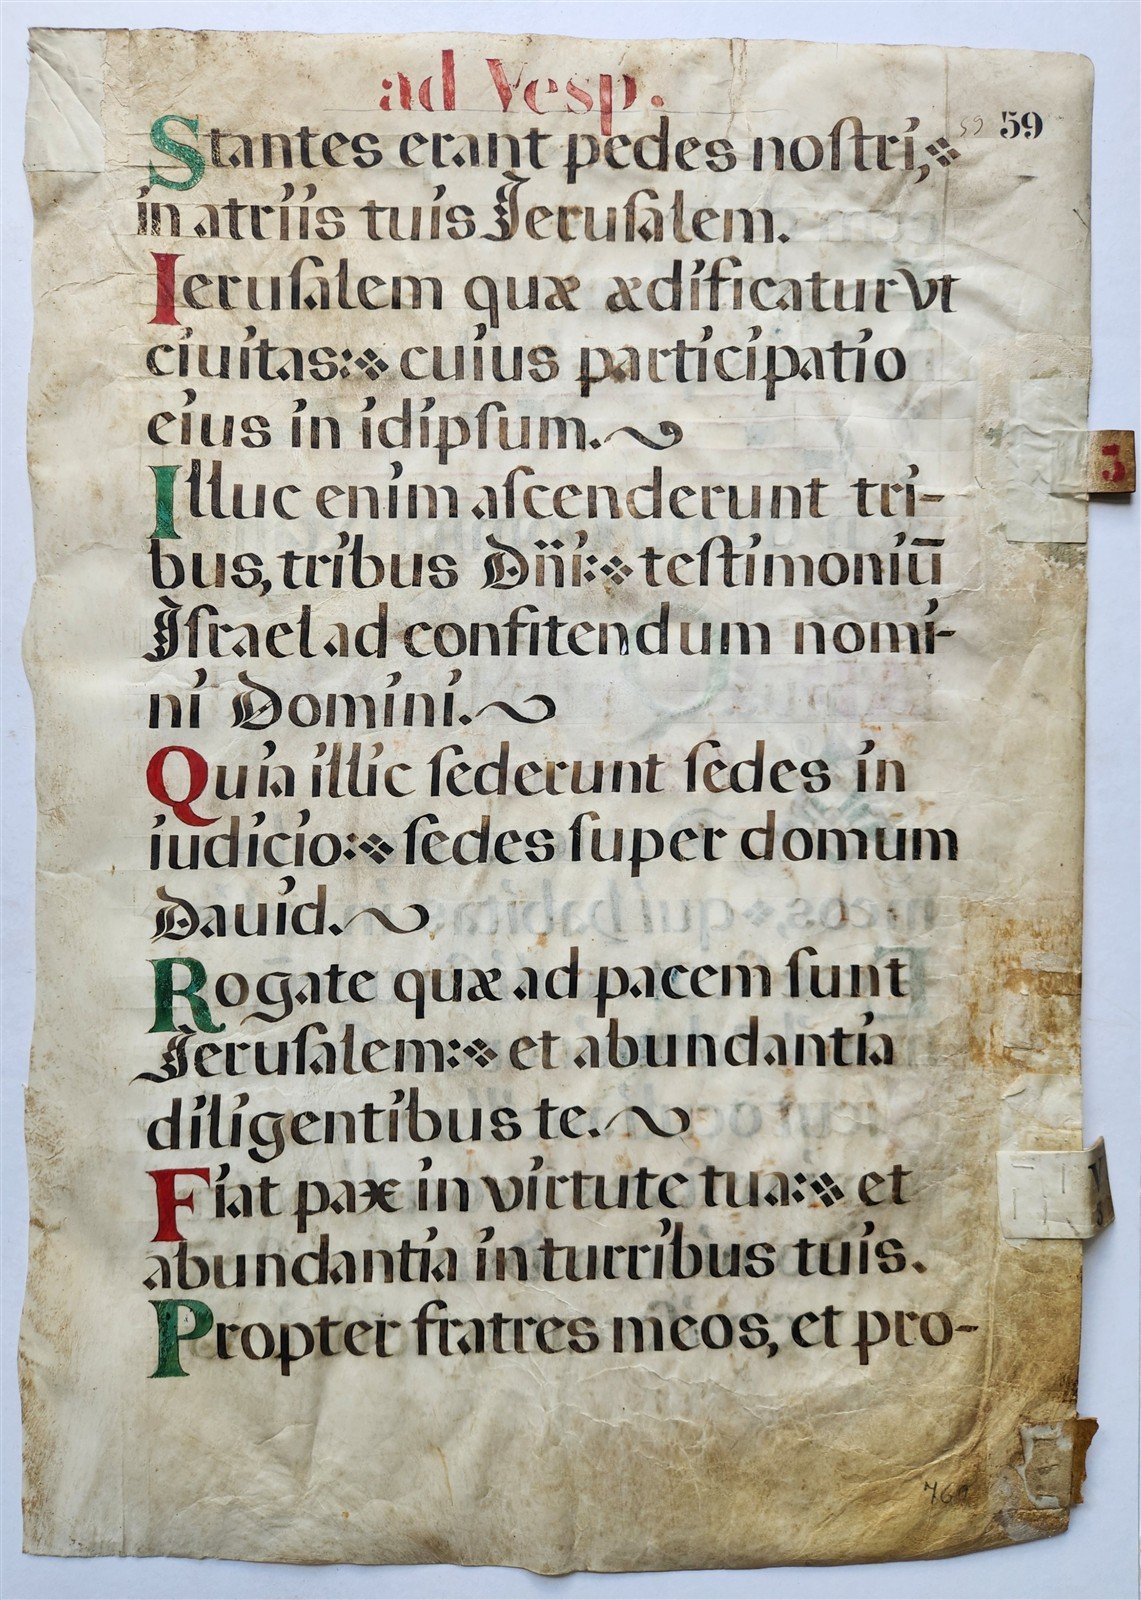 ad Vesp.
59 59
Stantes erant pedes noſtri,
in atriis tuis Jeruſalem.
Ieruſalem quæ ædificatur vt
ciuitas: cuius participatio
eius in idipſum.
3
Illuc enim aſcenderunt tri-
bus, tribus Dñi: teſtimoniū
Jſrael ad confitendum nomi-
ni Domini.
Quia illic ſederunt ſedes in
iudicio: ſedes ſuper domum
Dauid.
Rogate quæ ad pacem ſunt
Jeruſalem: et abundantia
diligentibus te.
Fiat pax in virtute tua: et
V
abundantia in turribus tuis.
Propter fratres meos, et pro-